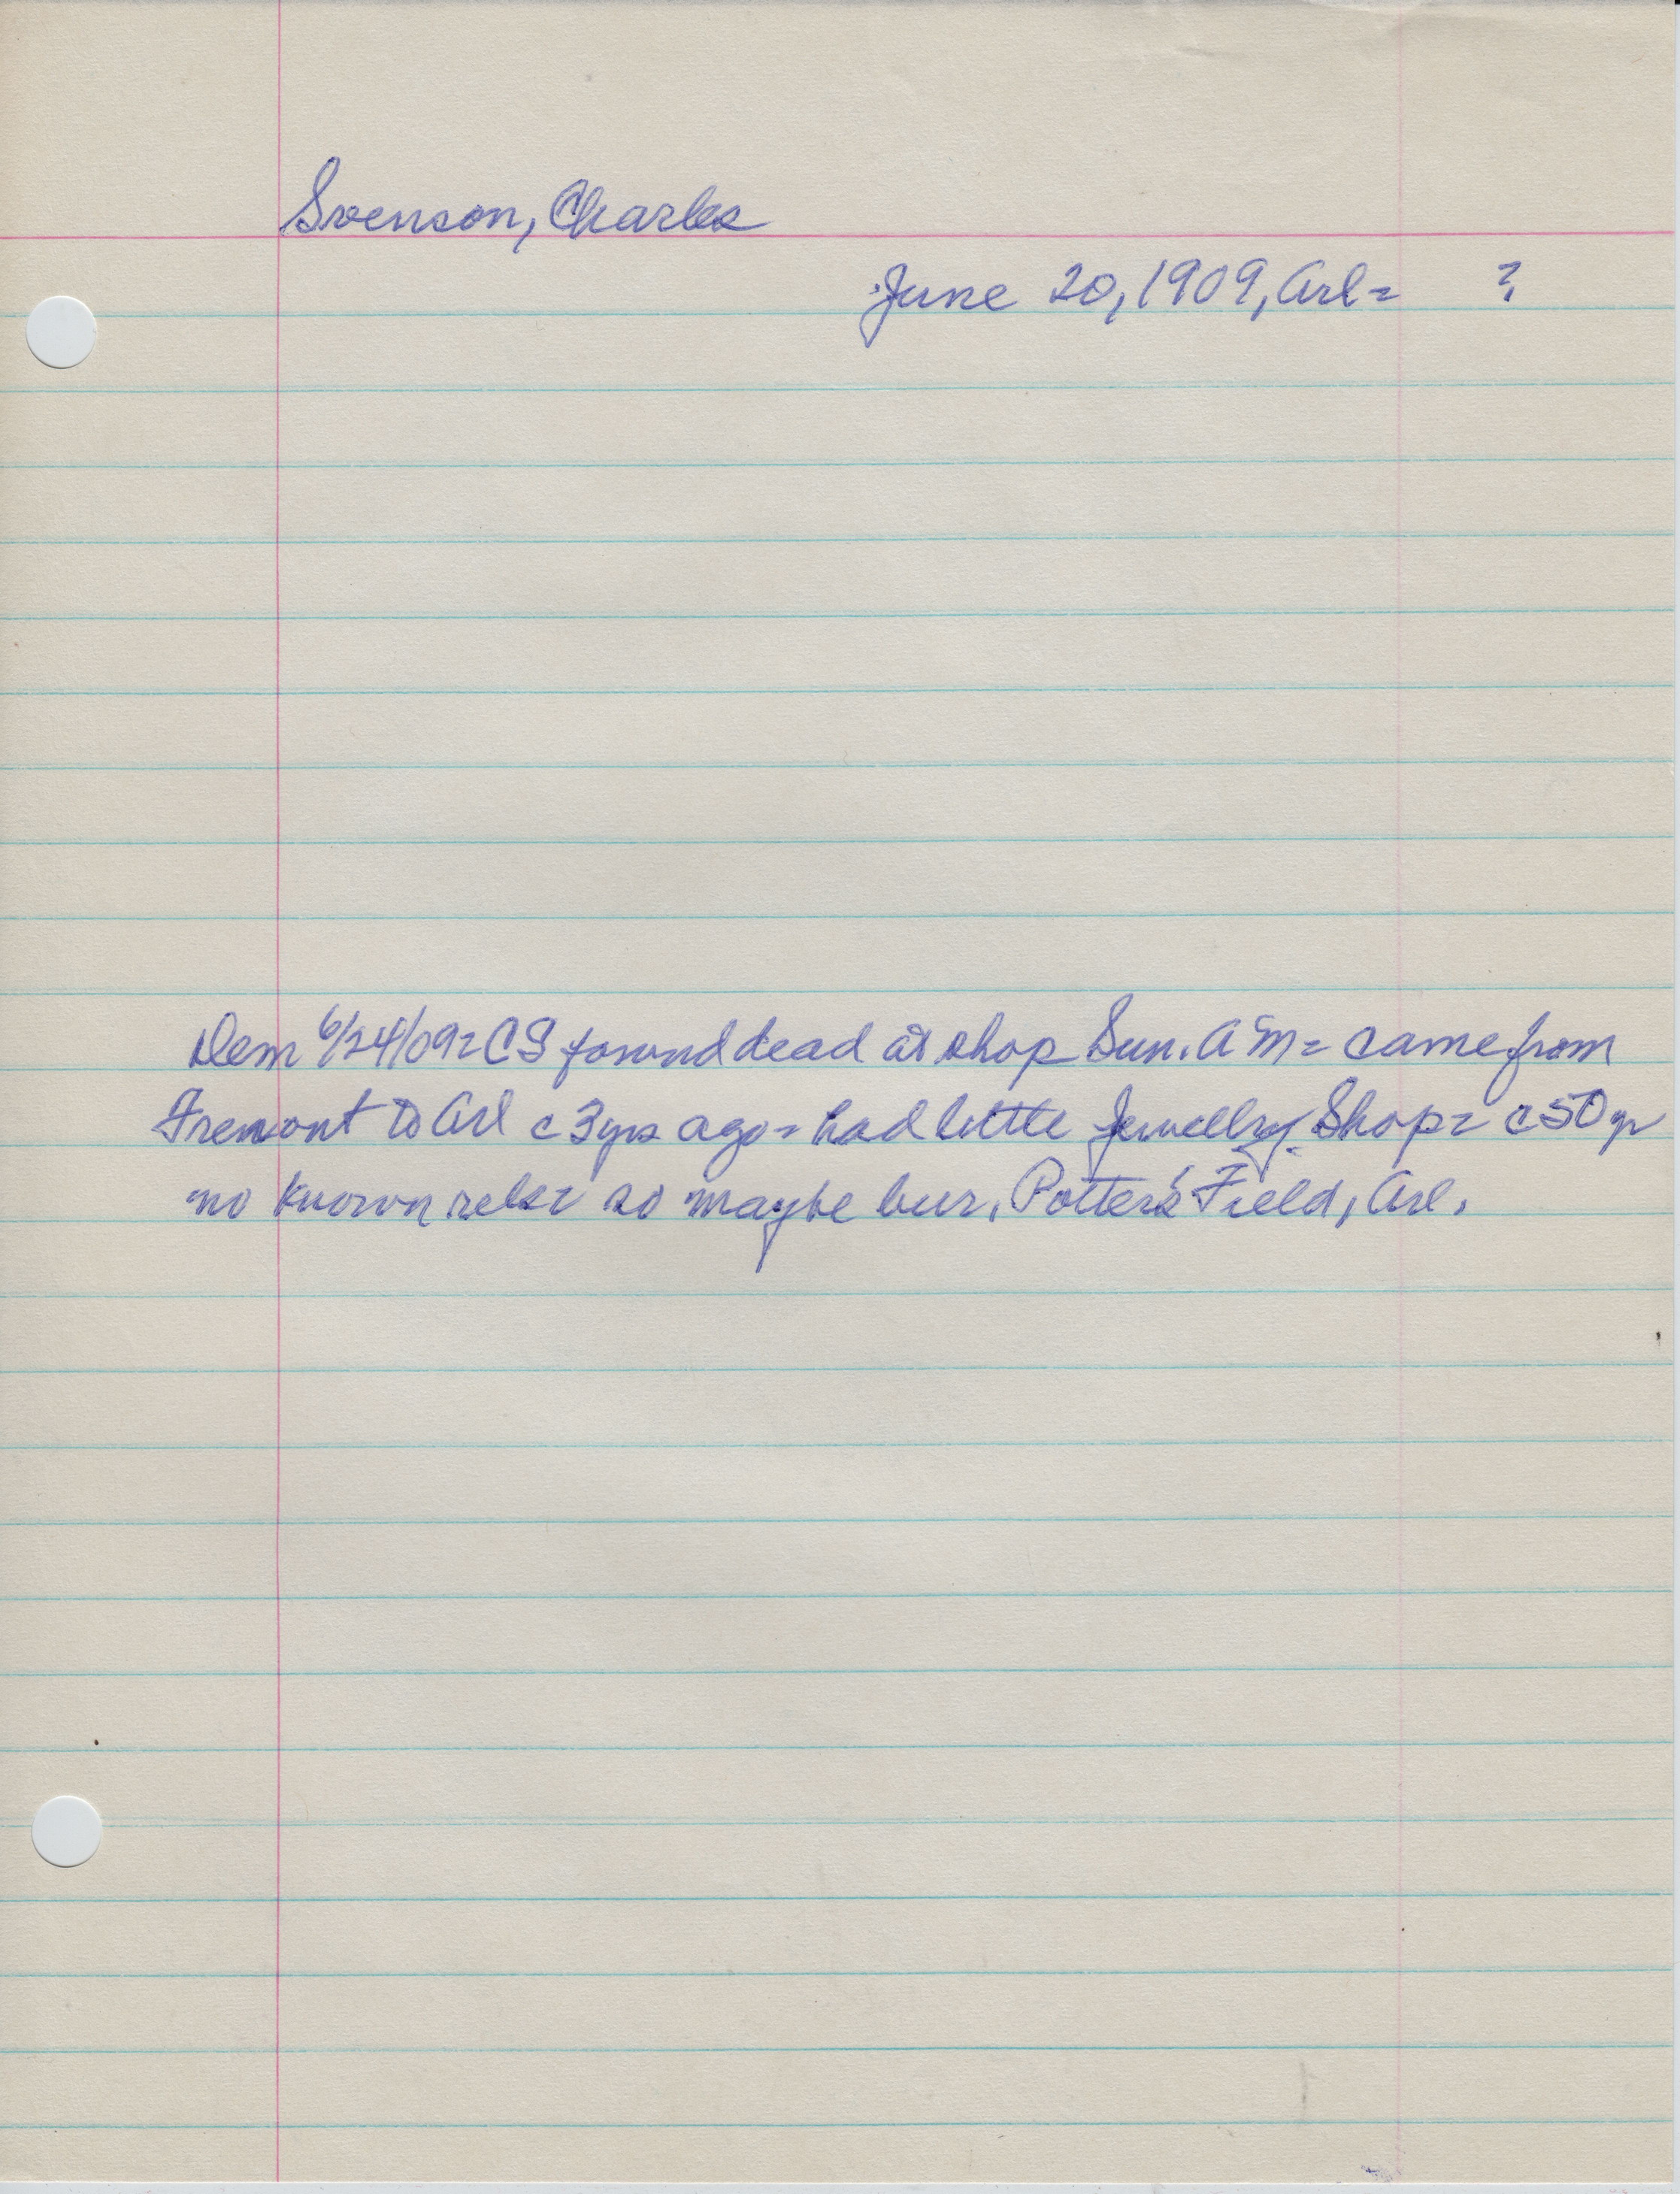 Svenson, Charles
June 20, 1909, Arl= ?
Dem 6/24/09= CS found dead at shop Sun. AM= came from
Fremont to Arl c 3 yrs ago= had little Jewellry Shop= c 50 yr
no known rels= so maybe bur. Potter's Field, Arl.